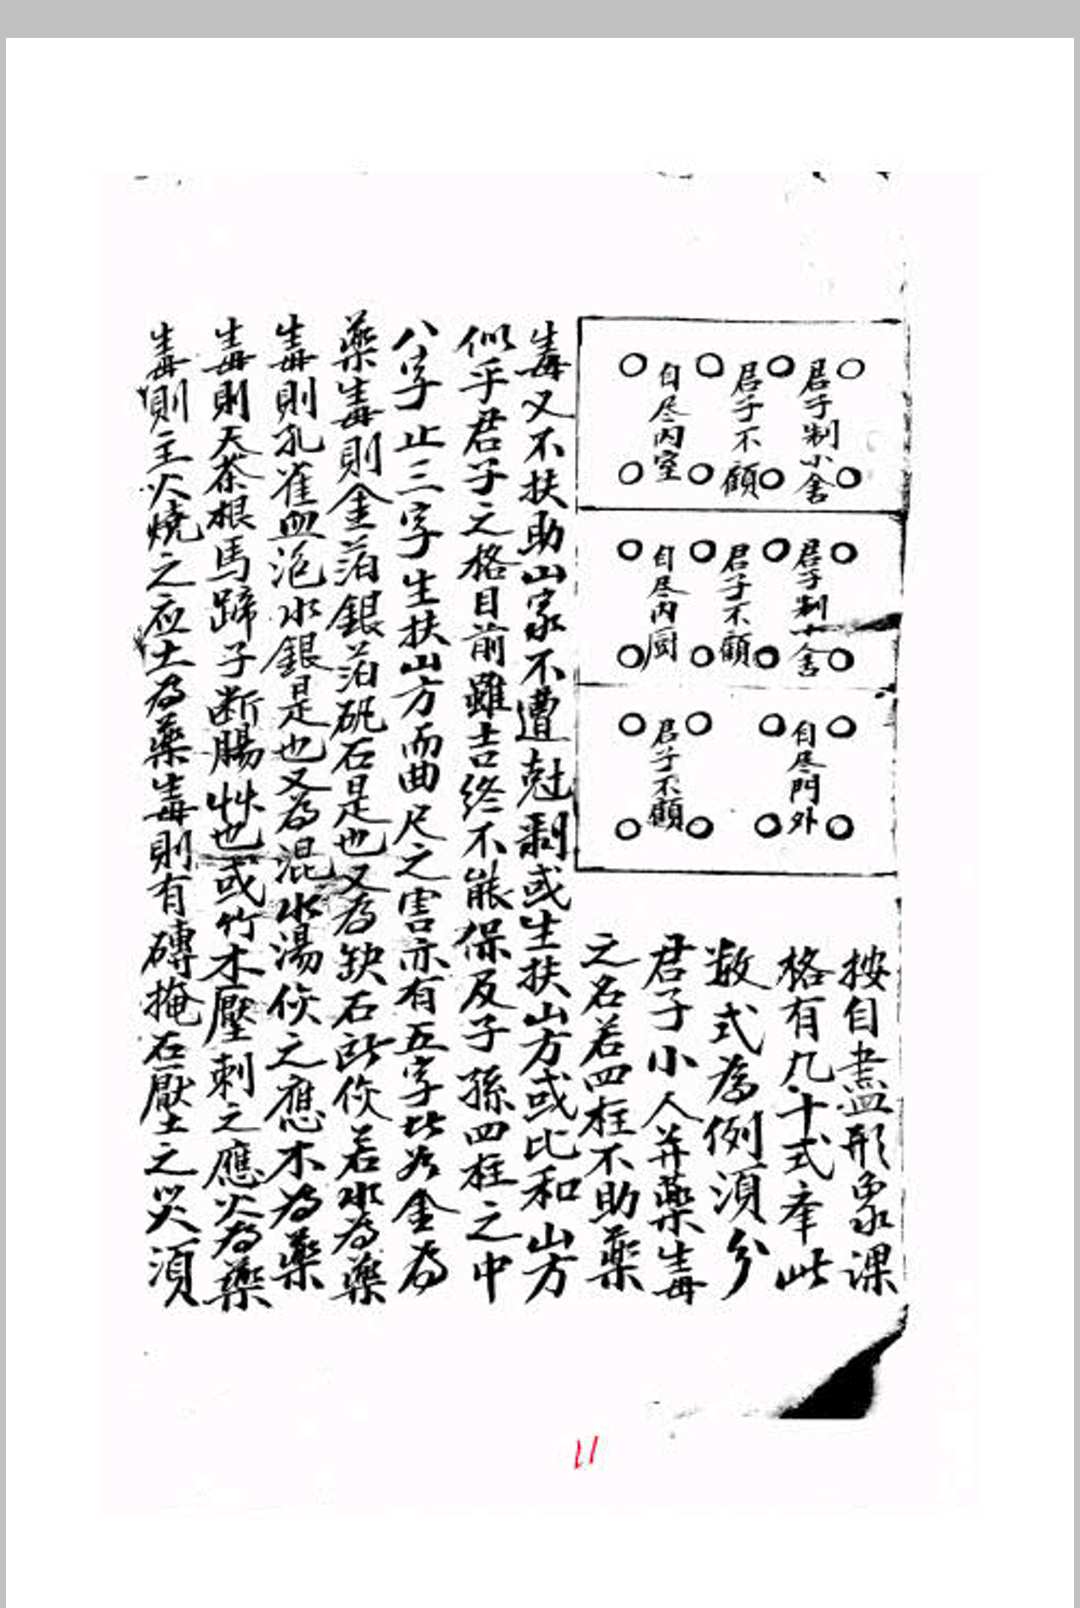 君子制小舍
君子不顧
自尽內室
君子制小舍
君子不顧
自尽內厨
自尽門外
君子不顧
按自盡形象課
格有九十式奉此
数式為例須分
君子小人并藥生毒
之名若四柱不助藥
毒又不扶助山家不遭尅剥或生扶山方或比和山方
似乎君子之格目前雖吉終不能保及子孫四柱之中
八字止三字生扶山方而曲尺之害亦有五字比分金為
藥生毒則金箔銀箔砒石是也又為缺石所伤若水為藥
毒則孔雀血泡水銀是也又為混水湯伤之應木為藥
生毒則天茶根馬蹄子断腸艸也或竹木壓刺之應火為藥
生毒則主火燒之应土為藥生毒則有磚掩石壓土之災須
11